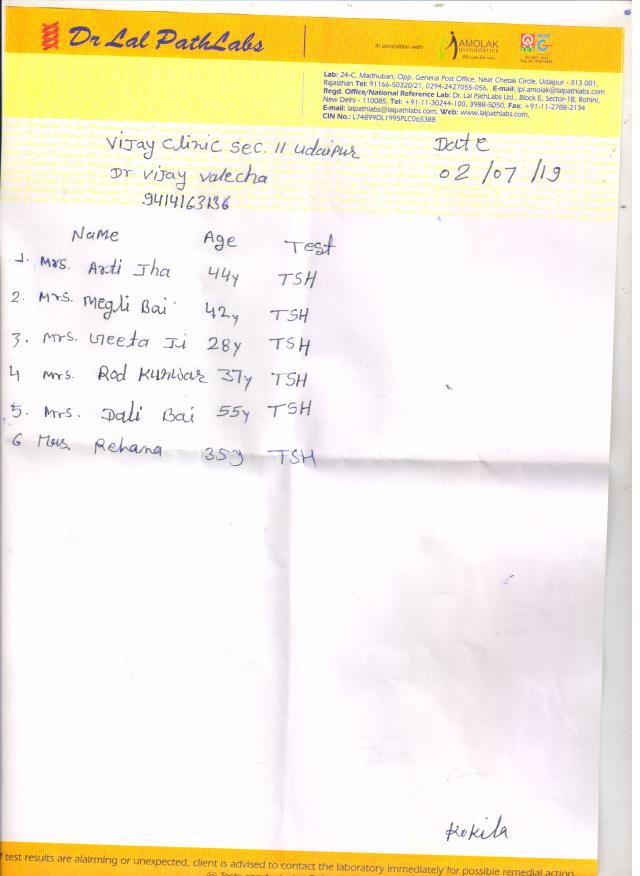 Dr Lal PathLabs
In association with
AMOLAK
DIAGNOSTICS
Lab: 24-C, Madhuban, Opp. General Post Office, Near Chetak Circle, Udaipur - 313 001,
Rajasthan Tel: 91166-50320/21, 0294-2427055-056, E-mail: lpl.amolak@lalpathlabs.com
Regd. Office/National Reference Lab: Dr. Lal PathLabs Ltd., Block E, Sector-18, Rohini,
New Delhi - 110085, Tel: +91-11-30244-100, 3988-5050, Fax: +91-11-2788-2134
E-mail: lalpathlabs@lalpathlabs.com, Web: www.lalpathlabs.com,
CIN No.: L74899DL1995PLC065388
Vijay Clinic Sec. 11 Udaipur Date
Dr Vijay Valecha 02/07/19
9414163136
Name Age Test
1. Mrs. Arti Jha 44y TSH
2. Mrs. Megli Bai 42y TSH
3. Mrs. Geeta Ji 28y TSH
4 Mrs. Rod Kunwar 37y TSH
5. Mrs. Dali Bai 55y TSH
6 Mrs. Rehana 35y TSH
Kokila
f test results are alairming or unexpected, client is advised to contact the laboratory immediately for possible remedial action